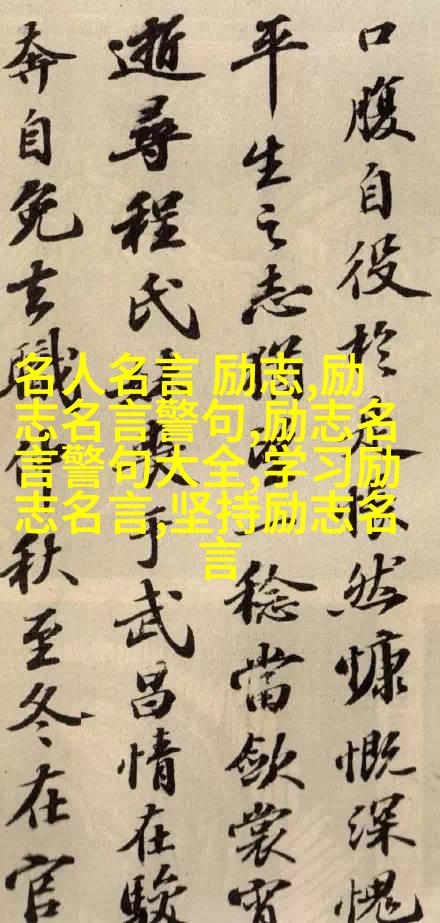 口腹自役於然慷慨深愧
平生之志稔當歛裳宵
逝尋程氏喪于武昌情在駿
奔自免去職秋至冬在官
名人名言 励志,励
志名言警句,励志名
言警句大全,学习励
志名言,坚持励志名
言